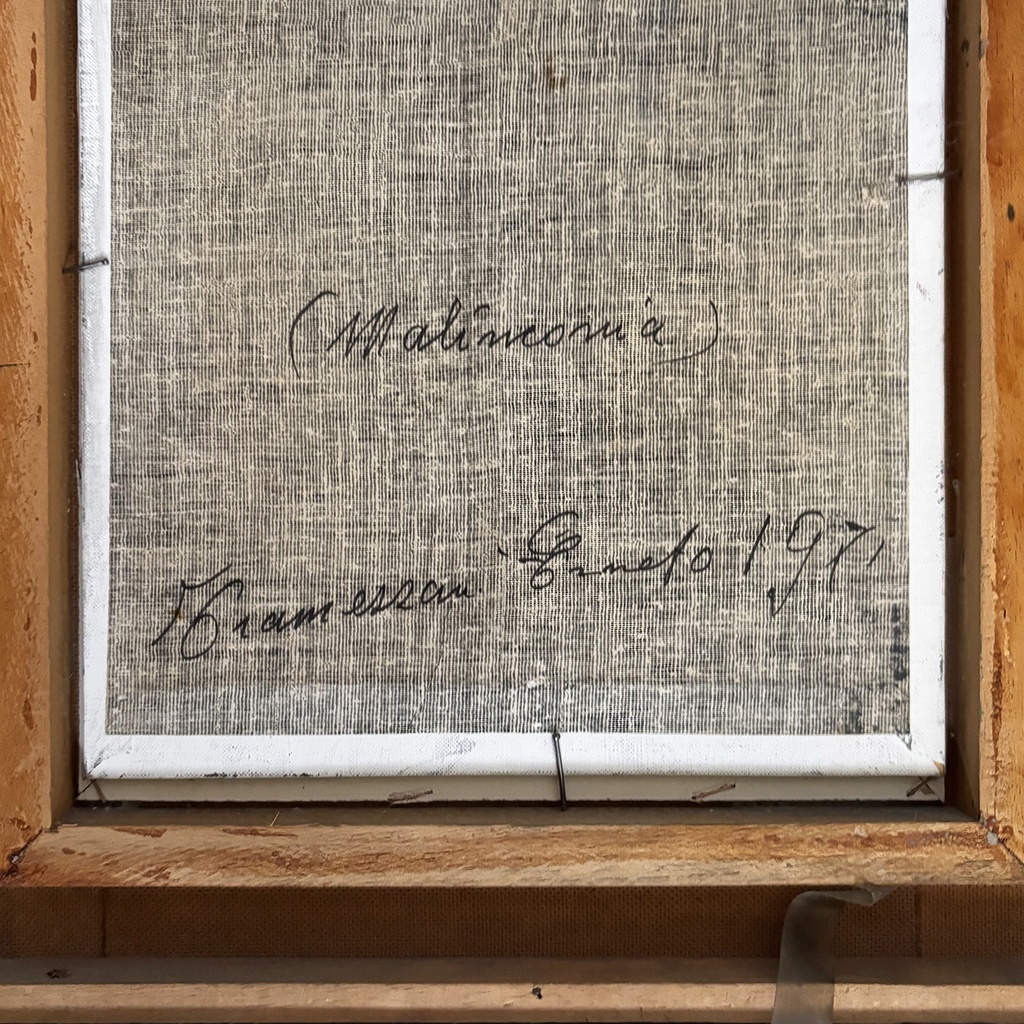 (Malinconia)
Tramezzan Erneto 1971